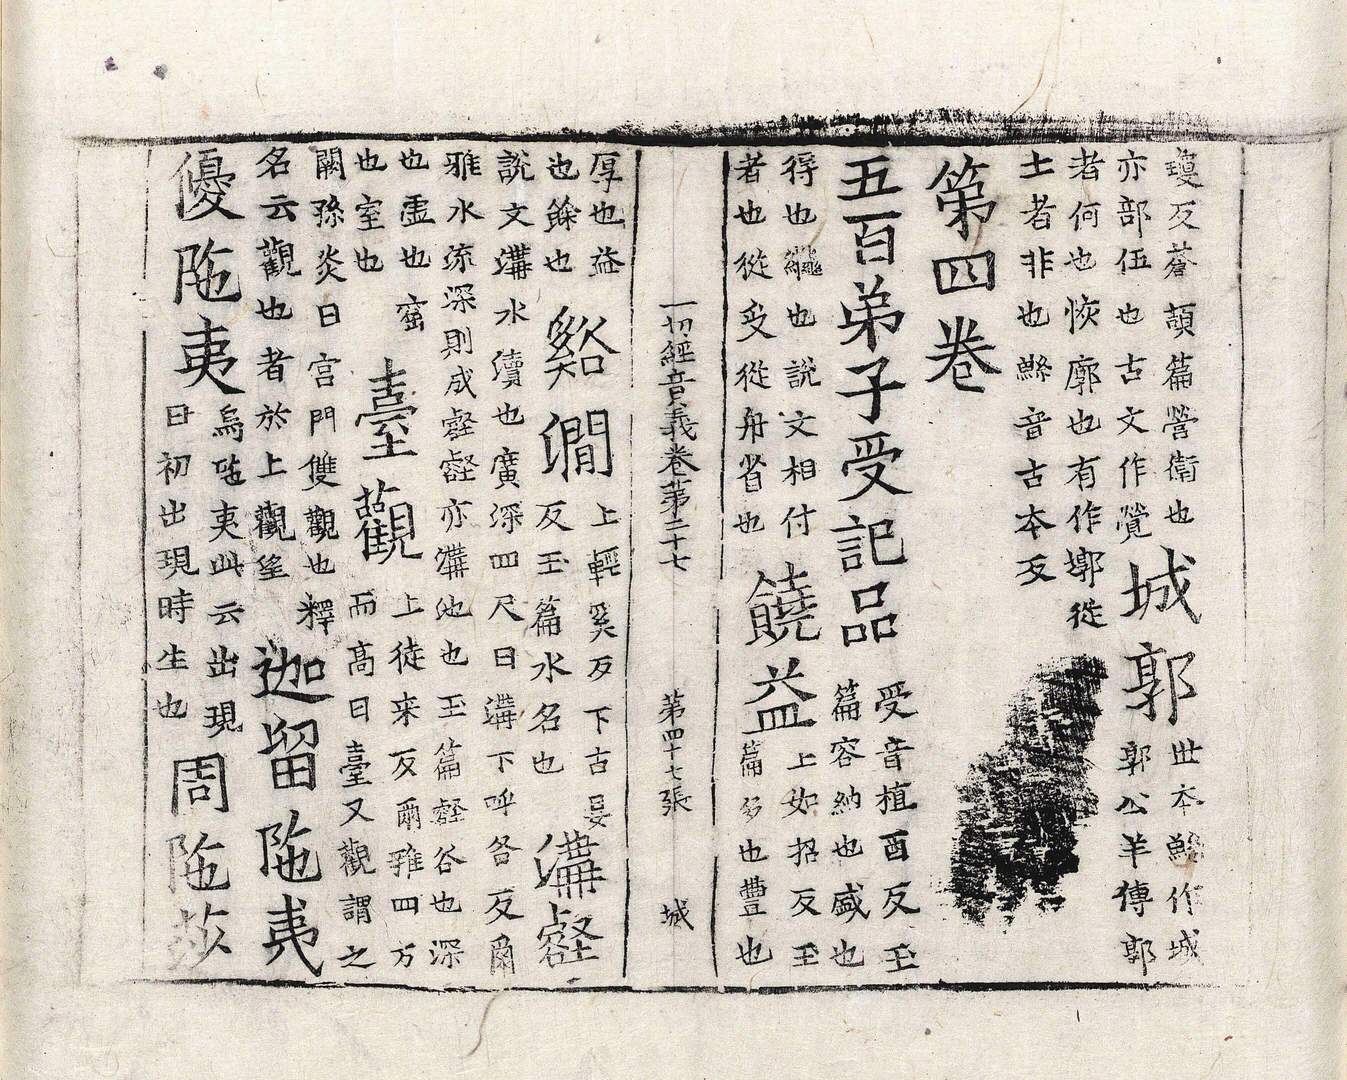 瓊反蒼頡篇營衛也
亦部伍也古文作覺
城郭
世本鯀作城
郭公羊傳郭
者何也恢廓也有作墎從
土者非也鯀音古本反
第四卷
五百弟子受記品
受音植酉反玉
篇容納也盛也
得也繼也說文相付
者也從𠬪從舟省也
饒益
上如招反玉
篇多也豊也
一切經音義卷第二十七 第四十七張 城
厚也益
也餘也
谿澗
上輕奚反下古晏
反玉篇水名也
溝壑
說文溝水瀆也廣深四尺曰溝下呼各反爾
雅水流深則成壑壑亦溝池也玉篇壑谷也深
也虛也窟
也室也
臺觀
上徒来反爾雅四方
而高曰臺又觀謂之
闕孫炎曰宮門雙觀也釋
名云觀也者於上觀望
迦留陁夷
優陁夷
烏陁夷此云出現
日初出現時生也
周陁莎